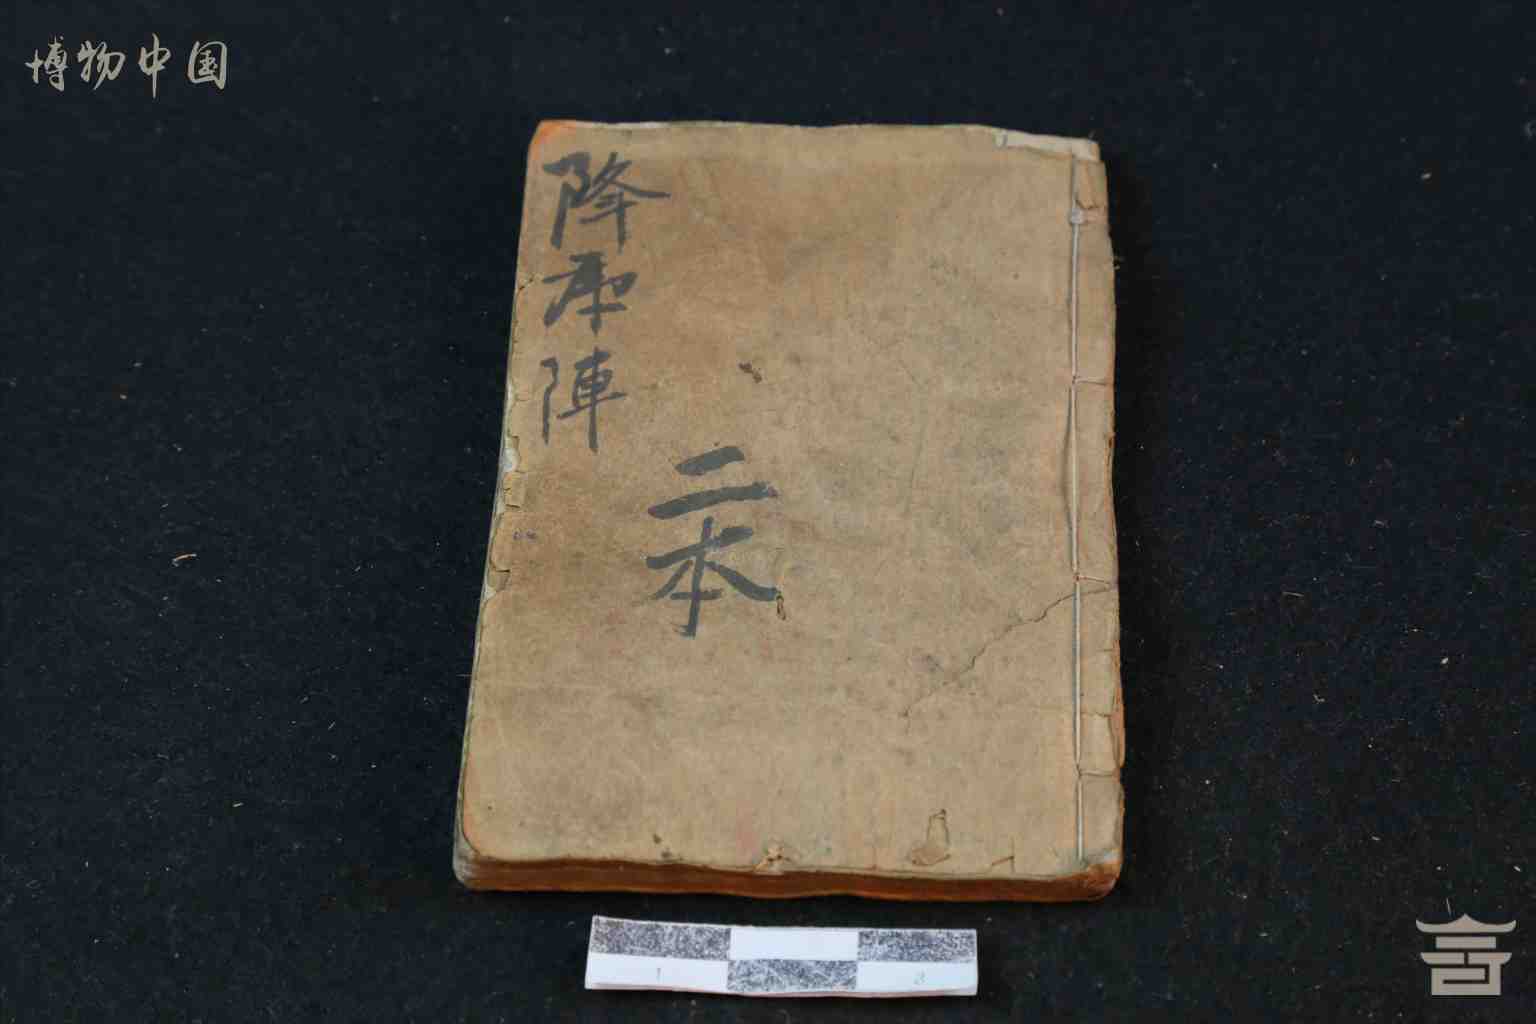 博物中国
降 陣
二本
1
3